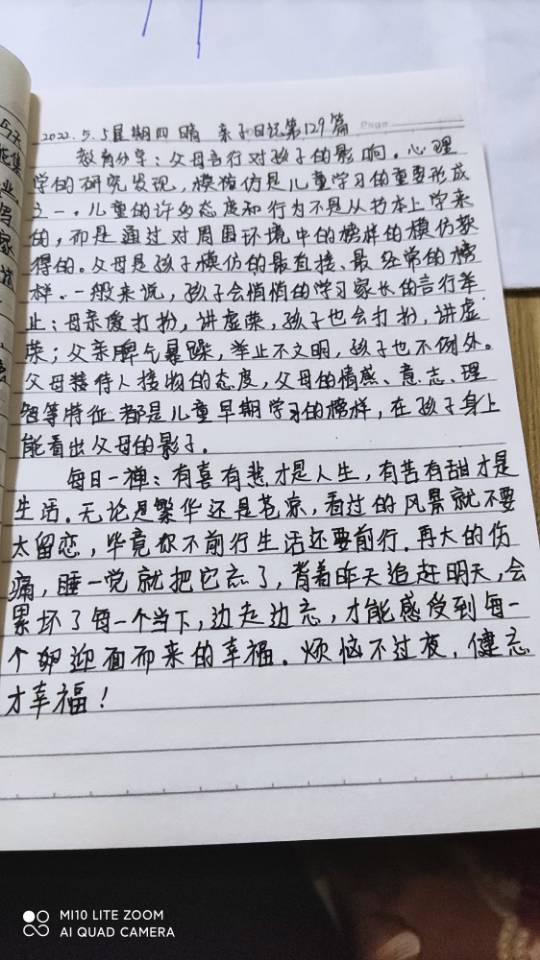 2022.5.5星期四 晴 亲子日记第129篇
Page
教育分享：父母言行对孩子的影响。心理
学的研究发现，模仿是儿童学习的重要形成
之一。儿童的许多态度和行为不是从书本上学来
的，而是通过对周围环境中的榜样的模仿获
得的。父母是孩子模仿的最直接、最经常的榜
样。一般来说，孩子会悄悄的学习家长的言行举
止：母亲爱打扮，讲虚荣，孩子也会打扮，讲虚
荣；父亲脾气暴躁，举止不文明，孩子也不例外。
父母待人接物的态度，父母的情感、意志、理
智等特征都是儿童早期学习的榜样，在孩子身上
能看出父母的影子。
每日一禅：有喜有悲才是人生，有苦有甜才是
生活。无论是繁华还是苍凉，看过的风景就不要
太留恋，毕竟你不前行生活还要前行。再大的伤
痛，睡一觉就把它忘了，背着昨天追赶明天，会
累坏了每一个当下，边走边忘，才能感受到每一
个迎面而来的幸福。烦恼不过夜，健忘
才幸福！
MI10 LITE ZOOM
AI QUAD CAMERA